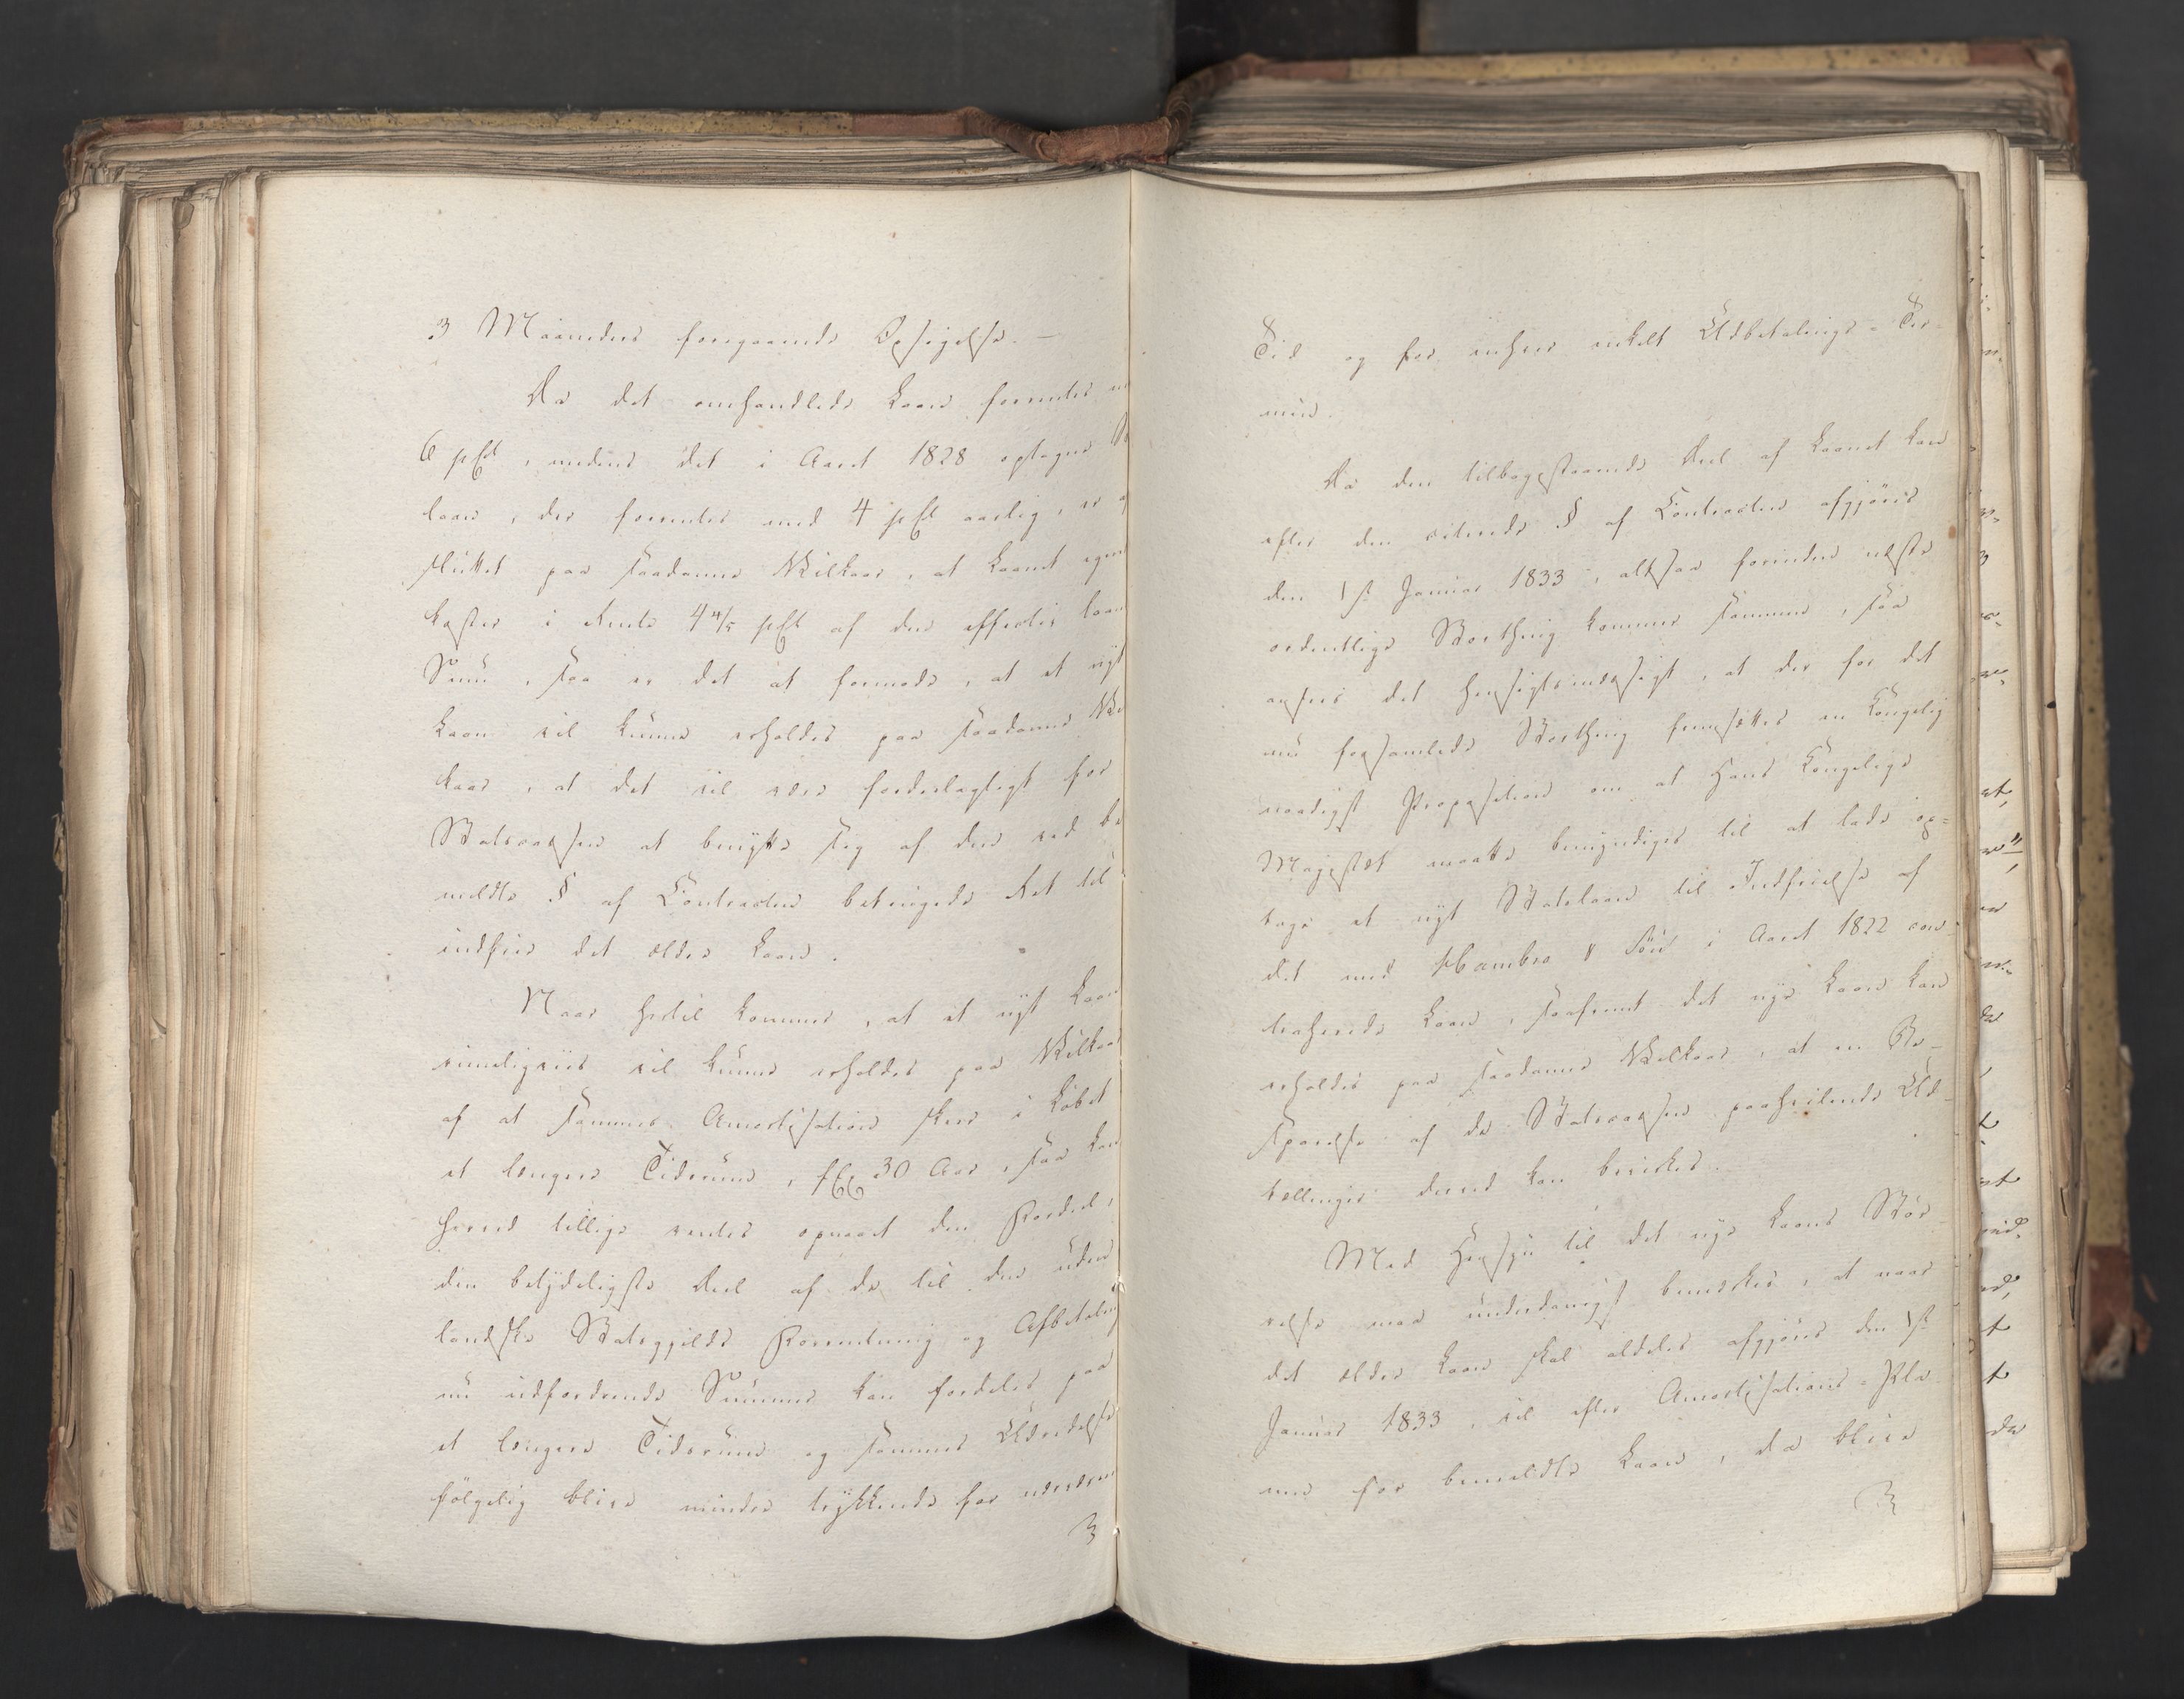 3 Maaneders foregaaende Opsigelse. –
Da det omhandlede Laan forrentes
6 pCt, medens det i Aaret 1828 optagne
laan, der forrentes med 4 pCt aarlig, er
sluttet paa saadanne Vilkaar, at Laanet
koster i Rente 4 4/5 pCt af den effective
Sum, saa er det at formode, at et nyt
Laan vil kunne erholdes paa saadanne Vil
kaar, at det vil være fordeelagtigt for
Statscassen at benytte sig af den ved be
meldte § af Contracten betingede Ret til
indfrie det ældre Laan.
Naar hertil kommer, at et nyt Laan
rimeligviis vil kunne erholdes paa Vilkaar
af at sammes Amortisation skeer i Løbet
et længere Tidsrum, f. Ex. 30 Aar, saa kan
herved tillige ventes opnaaet den Fordeel,
den betydeligste Deel af de til den uden
landske Statsgjælds Forrentning og Afbetaling
nu udfordrende Summer kan fordeles paa
et længere Tidsrum og sammes Udredelse
følgelig blive mindre trykkende for nærværen
Tid og for enhver enkelt Udbetalings-Ter-
min.
Da den tilbagestaaende Deel af Laanet kan
efter den citerede § af Contracten afgjøres
den 1ste Januar 1833, altsaa forinden næste
ordentlige Storthing kommer sammen, saa
ansees det hensigtsmæssigt, at der for det
nu forsamlede Storthing fremsættes en Kongelig
naadigst Proposition om at Hans Kongelige
Majestæt maatte bemyndiges til at lade op-
tage et nyt Statslaan til Indfrielse af
det med Hambro & Søn i Aaret 1822 con-
traherede Laan, saafremt det nye Laan kan
erholdes paa saadanne Vilkaar, at en Be-
sparelse af de Statscassen paahvilende Ud-
tællinger derved kan bevirkes.
Med Hensyn til det nye Laans Stør-
relse maa underdanigst bemærkes, at naar
det ældre Laan skal aldeles afgjøres den 1ste
Januar 1833, vil efter Amortisations-Pla-
nen for bemeldte Laan, da blive